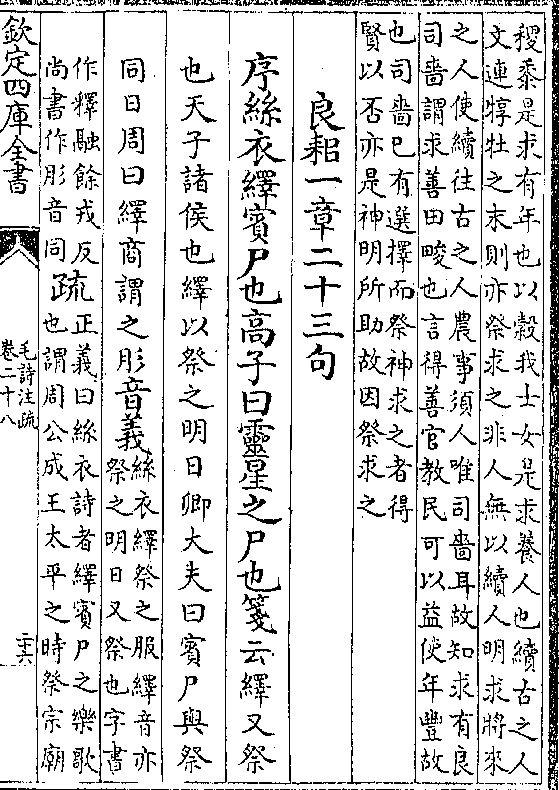 稷黍是求有年也以穀我士女是求養人也續古之人
文連犉牡之末則亦祭求之非人無以續人明求將來
之人使續往古之人農事須人唯司嗇耳故知求有良
司嗇謂求善田畯也言得善官教民可以益使年豐故
也司嗇已有選擇而祭神求之者得
賢以否亦是神明所助故因祭求之
良耜一章二十三句
序絲衣繹賓尸也高子曰靈星之尸也箋云繹又祭
也天子諸侯也繹以祭之明日卿大夫曰賓尸與祭
同日周曰繹商謂之肜音義
絲衣繹祭之服繹音亦
祭之明日又祭也字書
作釋融餘戎反
尚書作肜音同
疏
正義曰絲衣詩者繹賓尸之樂歌
也謂周公成王太平之時祭宗廟
欽定四庫全書
毛詩注疏
卷二十八